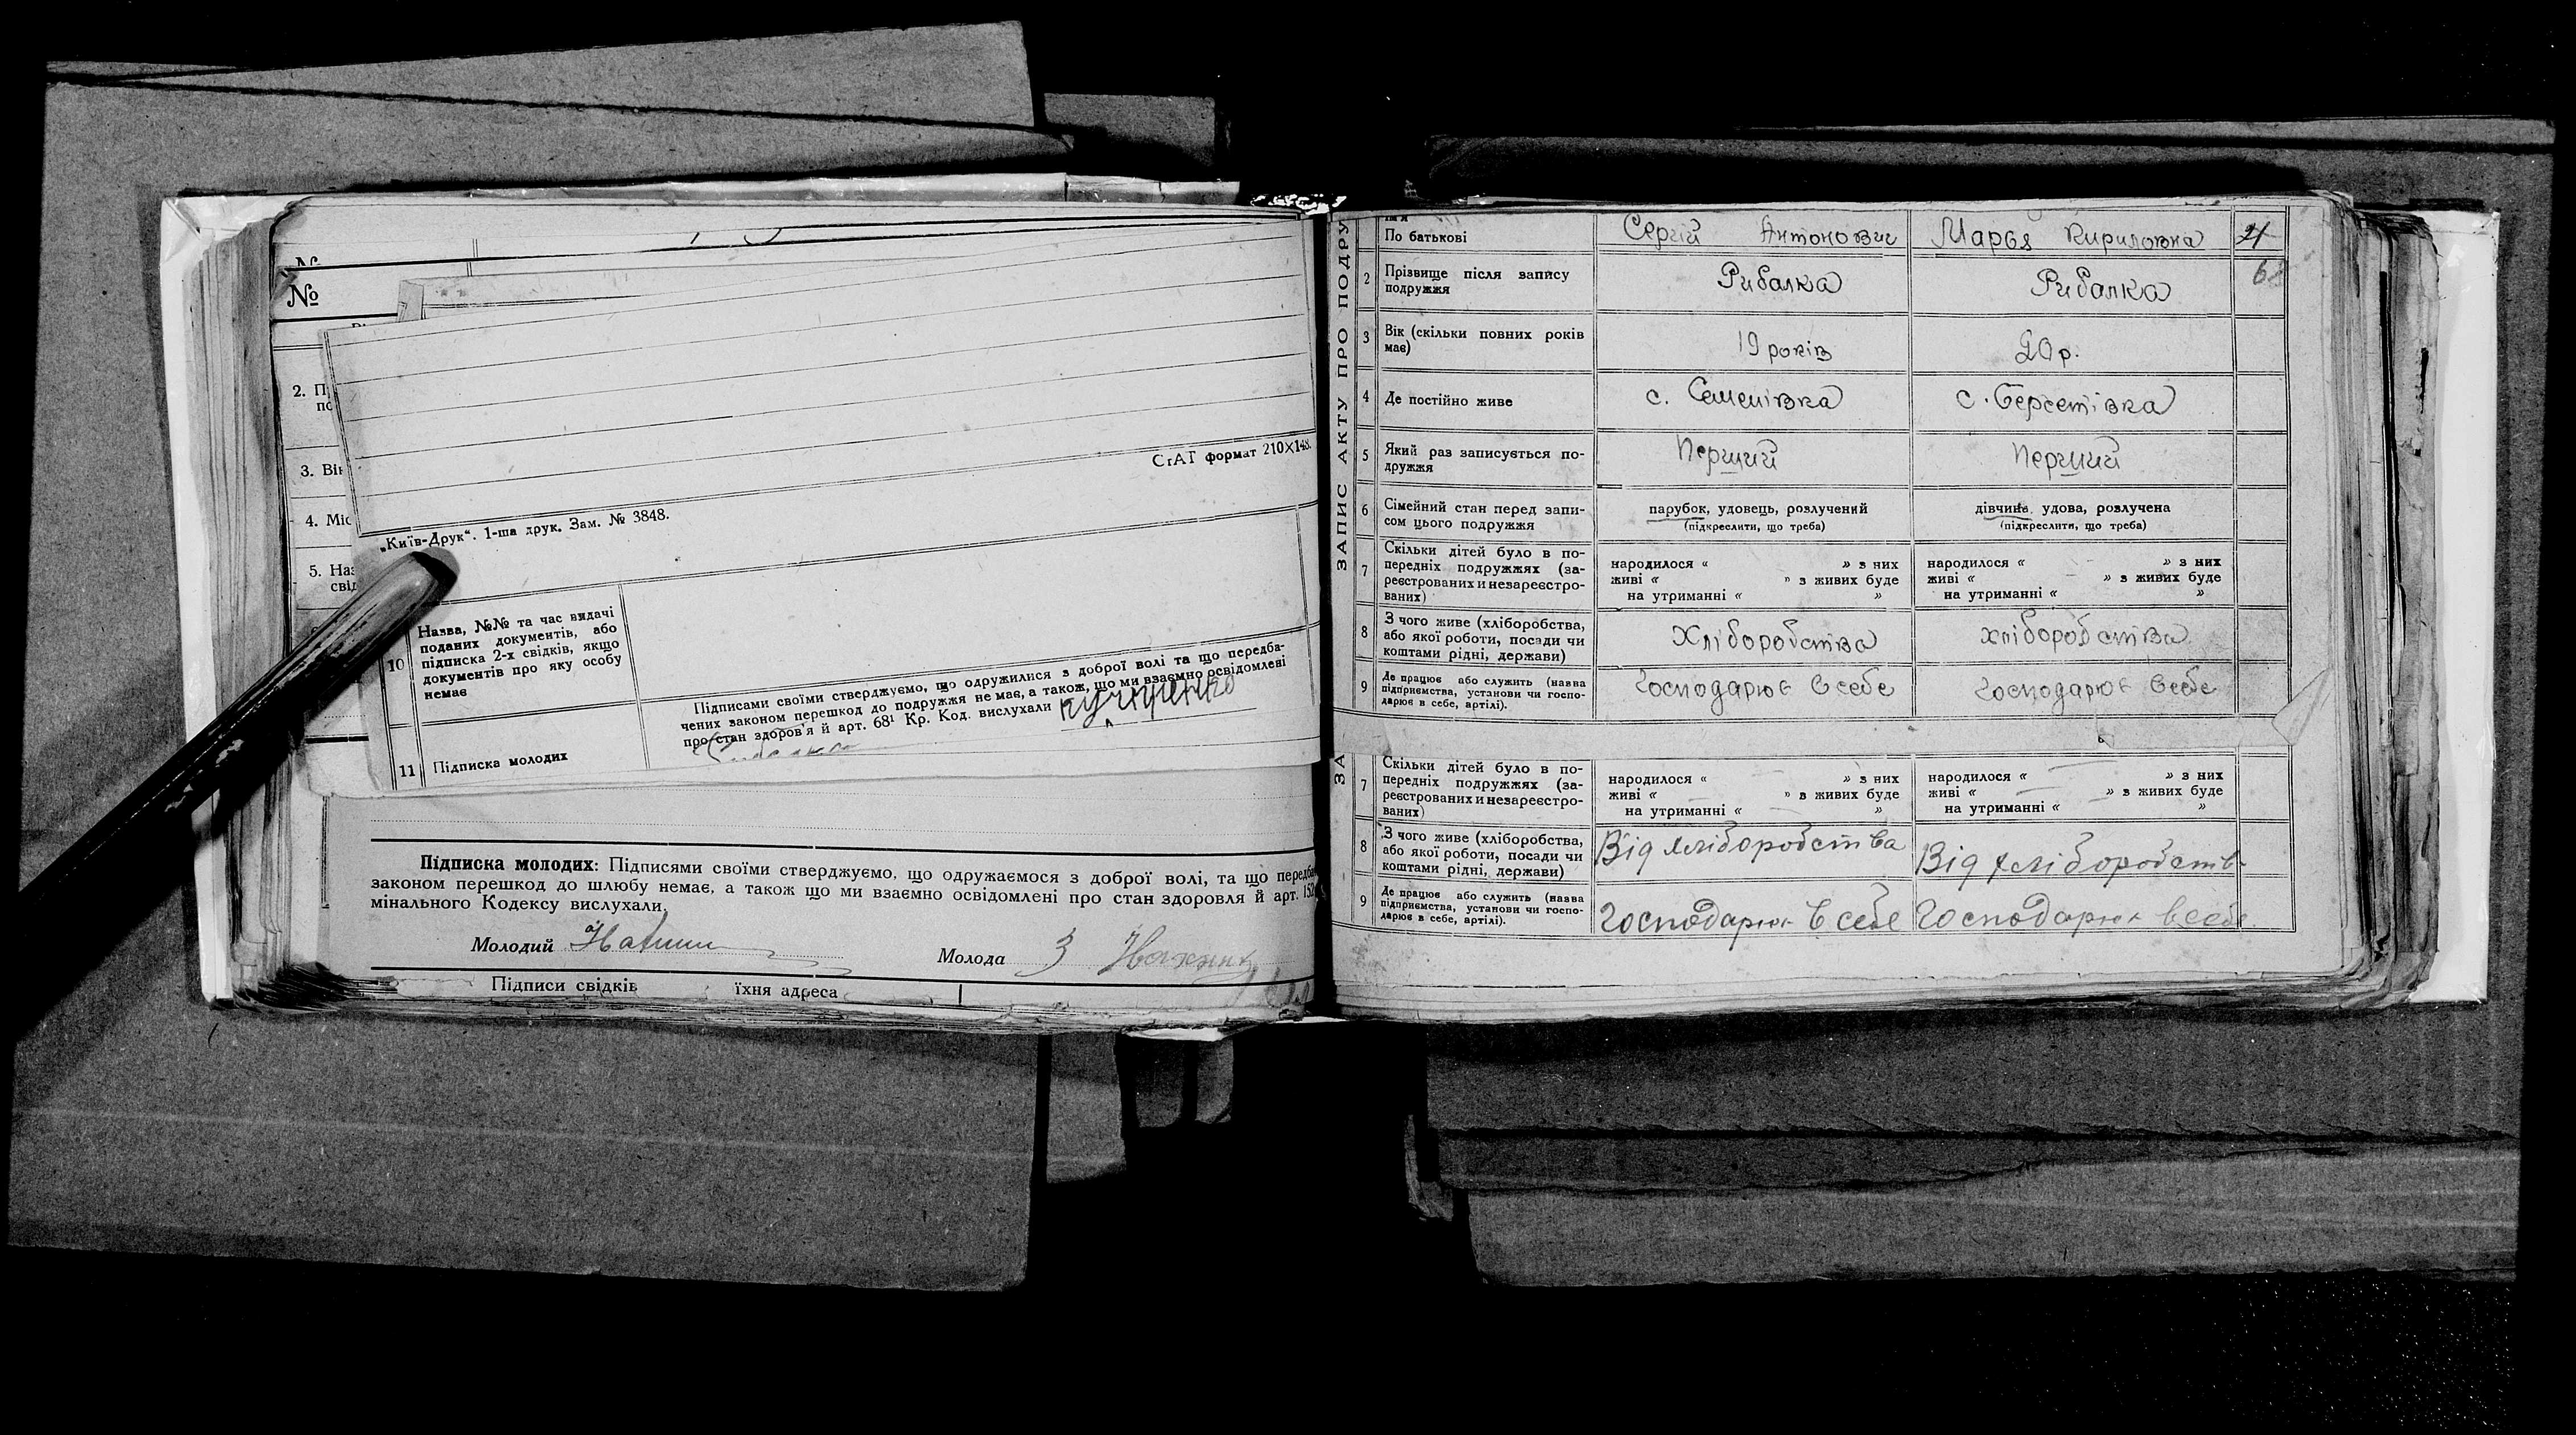 №
№
2. П
по
3. Вік
4. Міс
5. Наз
свід
СтАТ формат 210×148.
„Київ-Друк“. 1-ша друк. Зам. № 3848.
10
Назва, №№ та час видачі
поданих документів, або
підписка 2-х свідків, якщо
документів про яку особу
немає
11 Підписка молодих
Підписами своїми стверджуємо, що одружилися з доброї волі та що передба-
чених законом перешкод до подружжя немає, а також, що ми взаємно освідомлені
про стан здоров'я й арт. 68¹ Кр. Код. вислухали
Підписка молодих: Підписями своїми стверджуємо, що одружаємося з доброї волі, та що передба
законом перешкод до шлюбу немає, а також що ми взаємно освідомлені про стан здоровля й арт. 152
мінального Кодексу вислухали.
Молодий
Молода З
Підписи свідків їхня адреса
ЗАПИС АКТУ ПРО ПОДРУ
По батькові Сергій Антонович Марья Кириловна 21
2 Прізвище після запису
подружжя
Рибалка Рибалка
3 Вік (скільки повних років
має)
19 років 20 р.
4 Де постійно живе с. Семенівка с. Берестівка
5 Який раз записується по-
дружжя
Перший Перший
6 Сімейний стан перед запи-
сом цього подружжя
парубок, удовець, розлучений
(підкреслити, що треба)
дівчина, удова, розлучена
(підкреслити, що треба)
7 Скільки дітей було в по-
передніх подружжях (за-
реєстрованих и незареєстро-
ваних)
народилося “ ” з них
живі “ ” з живих буде
на утриманні “ ”
народилося “ ” з них
живі “ ” з живих буде
на утриманні “ ”
8 З чого живе (хліборобства,
або якої роботи, посади чи
коштами рідні, держави)
Хліборобства хліборобства
9 Де працює або служить (назва
підприємства, установи чи госпо-
дарює в себе, артілі).
Господарює в себе Господарює в себе
ЗА
7 Скільки дітей було в по-
передніх подружжях (за-
реєстрованих и незареєстро-
ваних)
народилося “ — ” з них
живі “ — ” з живих буде
на утриманні “ — ”
народилося “ — ” з них
живі “ — ” з живих буде
на утриманні “ — ”
8 З чого живе (хліборобства,
або якої роботи, посади чи
коштами рідні, держави)
Від хліборобства Від хліборобств
9 Де працює або служить (назва
підприємства, установи чи госпо-
дарює в себе, артілі).
Господарює в себе Господарює в себе